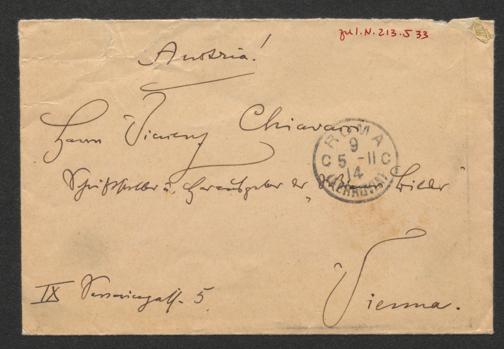 zu I.N. 213.533
Austria!
Herrn Vincenz Chiavacci
ROMA
9
C 5 -11 C
14
(FERROVIA)
Schriftsteller u. Herausgeber der "Wiener Bilder"
IX 5
Vienna.